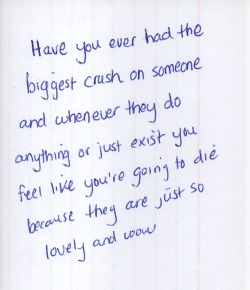 Have you ever had the
biggest crush on someone
and whenever they do
anything or just exist you
feel like you're going to die
because they are just so
lovely and wow